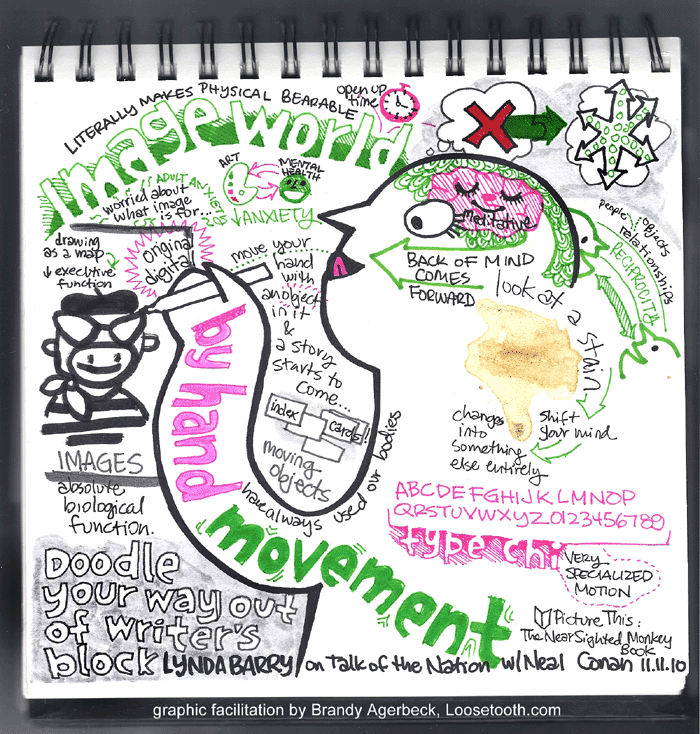 LITERALLY MAKES PHYSICAL BEARABLE
open up
time
Image world
ART
MENTAL
HEALTH
ADULT ANXIETY
worried about
what image
is for...
↓ ANXIETY
drawing
as a map
↓ executive
function
original
digital
move your
hand
with
an object
in it
&
a story
starts to
come...
by hand
index
cards!
moving
objects
have always used our bodies
movement
Meditative
BACK OF MIND
COMES
FORWARD
people objects
relationships
RECIPROCITY
look at a stain,
changes
into
something
else entirely
shift
your mind
IMAGES
absolute
biological
function.
ABCDEFGHIJKLMNOP
QRSTUVWXYZ0123456789
type chi
VERY
SPECIALIZED
MOTION
Picture This:
The Near Sighted Monkey
Book
Doodle
your way out
of writer's
block
LYNDA BARRY / on Talk of the Nation w/ Neal Conan 11.11.10
graphic facilitation by Brandy Agerbeck, Loosetooth.com